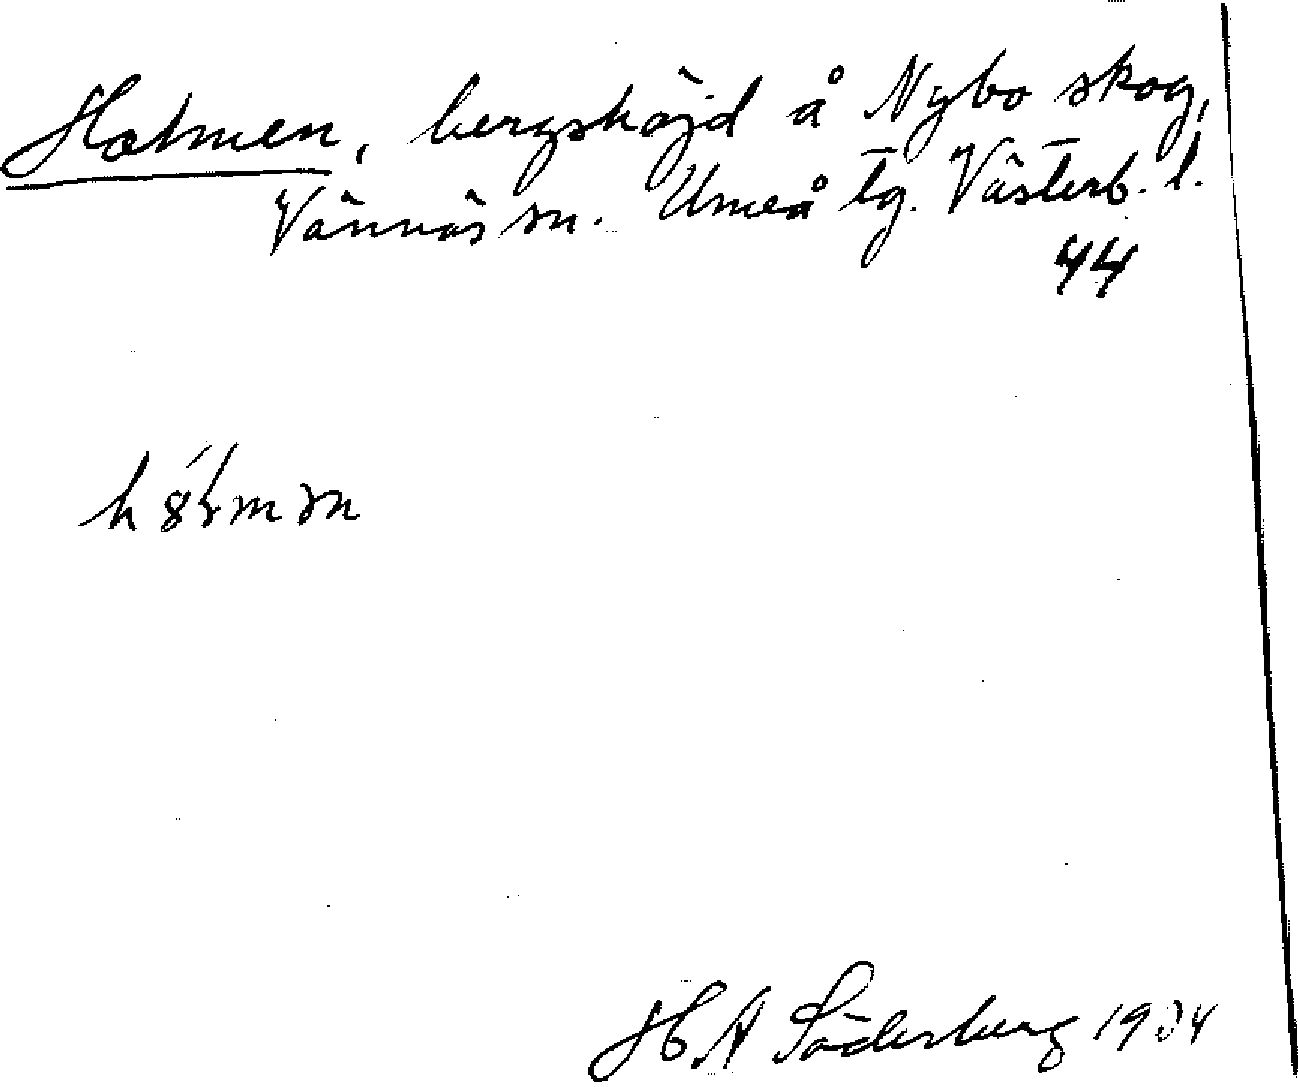 Holmen, bergshöjd å Nybo skog,
Vännäs sn. Umeå tg. Västerb. l.
44
H A Söderberg